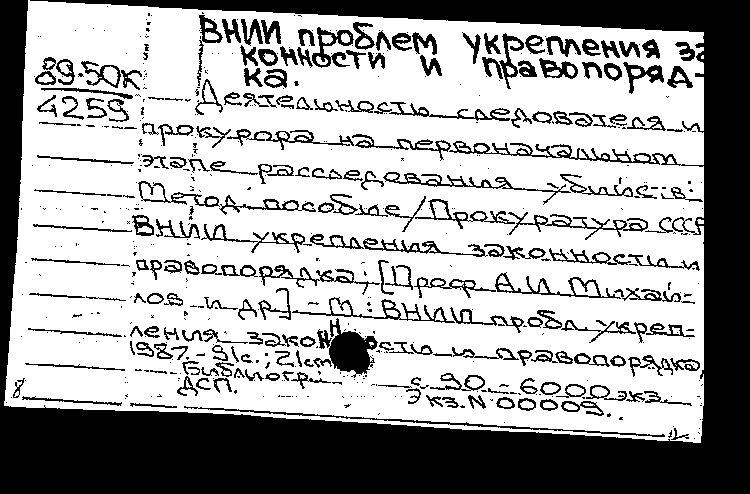 ВНИИ проблем укрепления за
конности и правопоряд-
ка.
89-50к
4259
Деятельность следователя и
прокурора на первоначальном
этапе расследования убийс-в:
Метод. пособие/Прокуратура СССР
ВНИИ укрепления законности и
правопорядка; [Проф А.И. Михай-
лов и др] - М: ВНИИ пробл. укреп-
ления законности и правопорядка,
1987.- 91с.; 21cm
Библиогр.: с 90. - 6000 экз.
ДСП. Экз. N 00009.
8